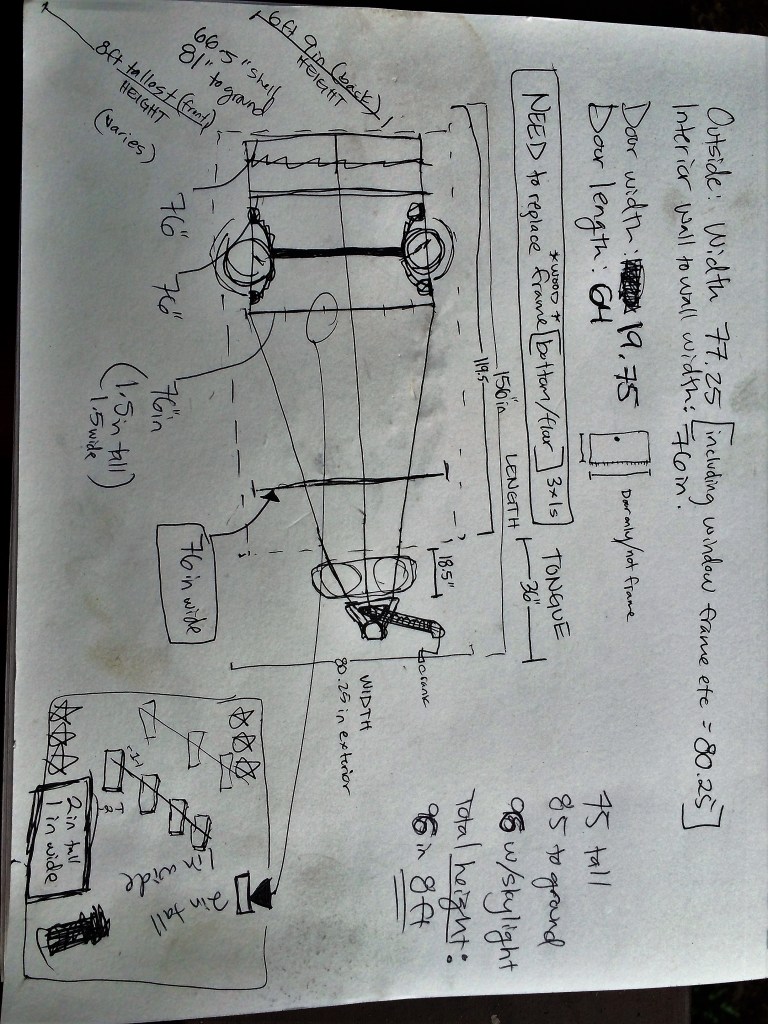 Outside: Width 77.25 [including window frame etc = 80.25"]
Interior wall to wall width: 76 in.
Door width: 19.75
Door length: 64
Door only/not frame
NEED to replace frame [bottom/floor] 3x1s
*wood*
6ft 9in (back)
HEIGHT
66.5" shell
81" to ground
8ft tallest (front)
HEIGHT
(varies)
156in LENGTH
119.5
TONGUE
36"
18.5"
crank
WIDTH
80.25 in exterior
76"
76"
76in
(1.5 in tall)
1.5 wide
76 in wide
75 tall
85 to ground
96 w/skylight
Total height:
96 in 8ft
2in tall
1in wide
-1-
2
2in tall
1in wide